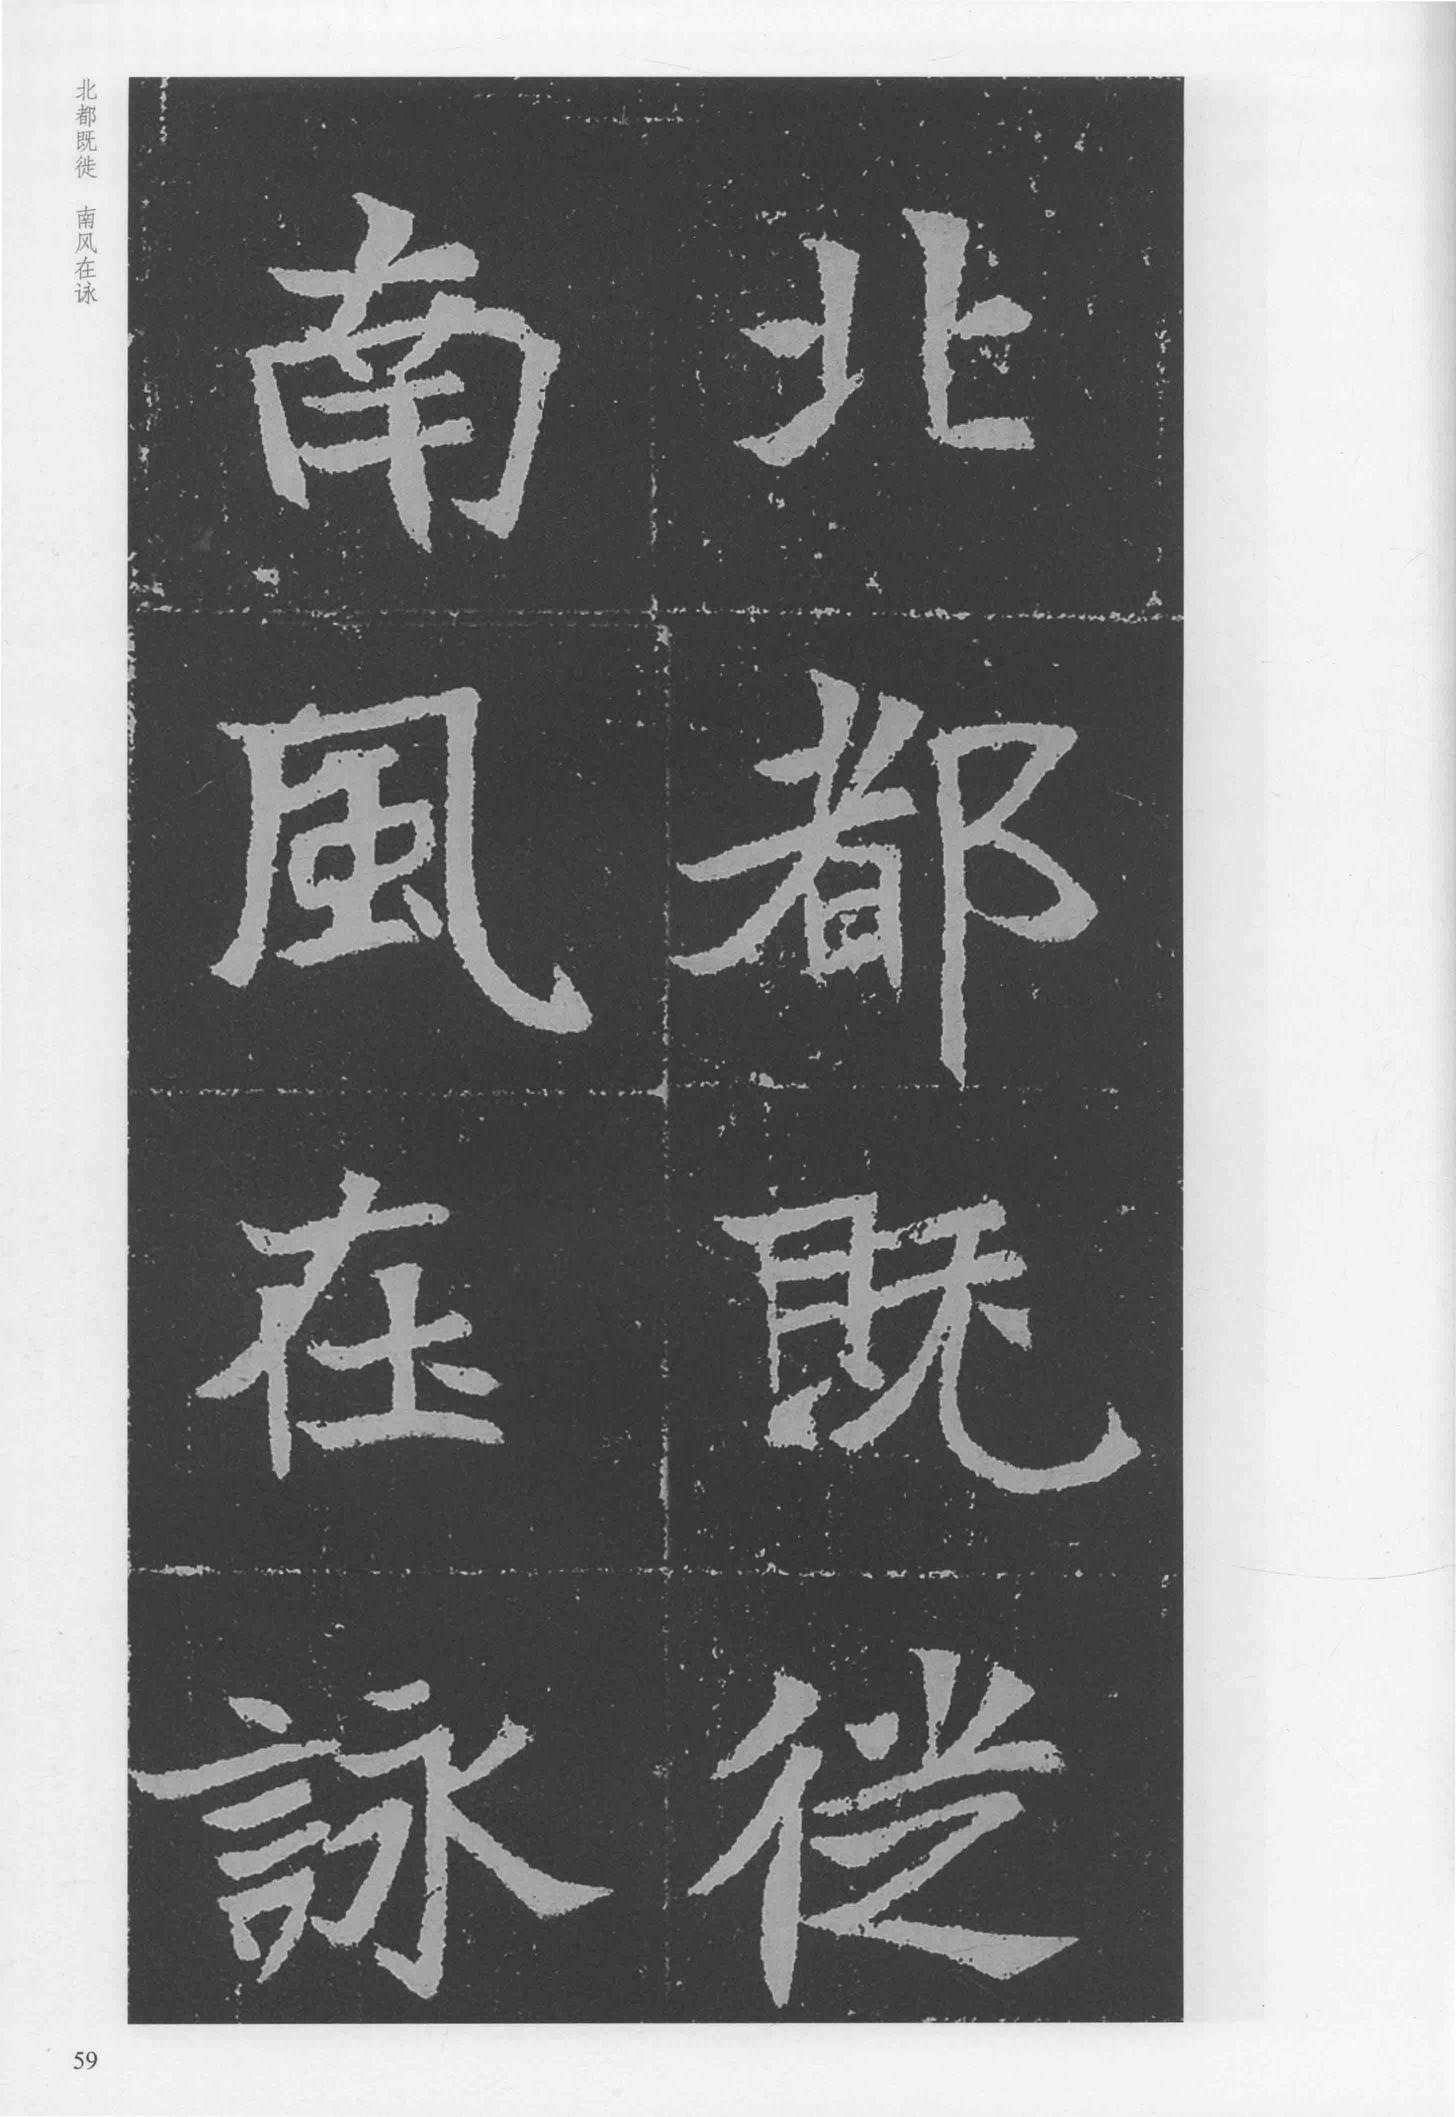 北都既徙
南風在詠
北都既徙 南风在咏
59